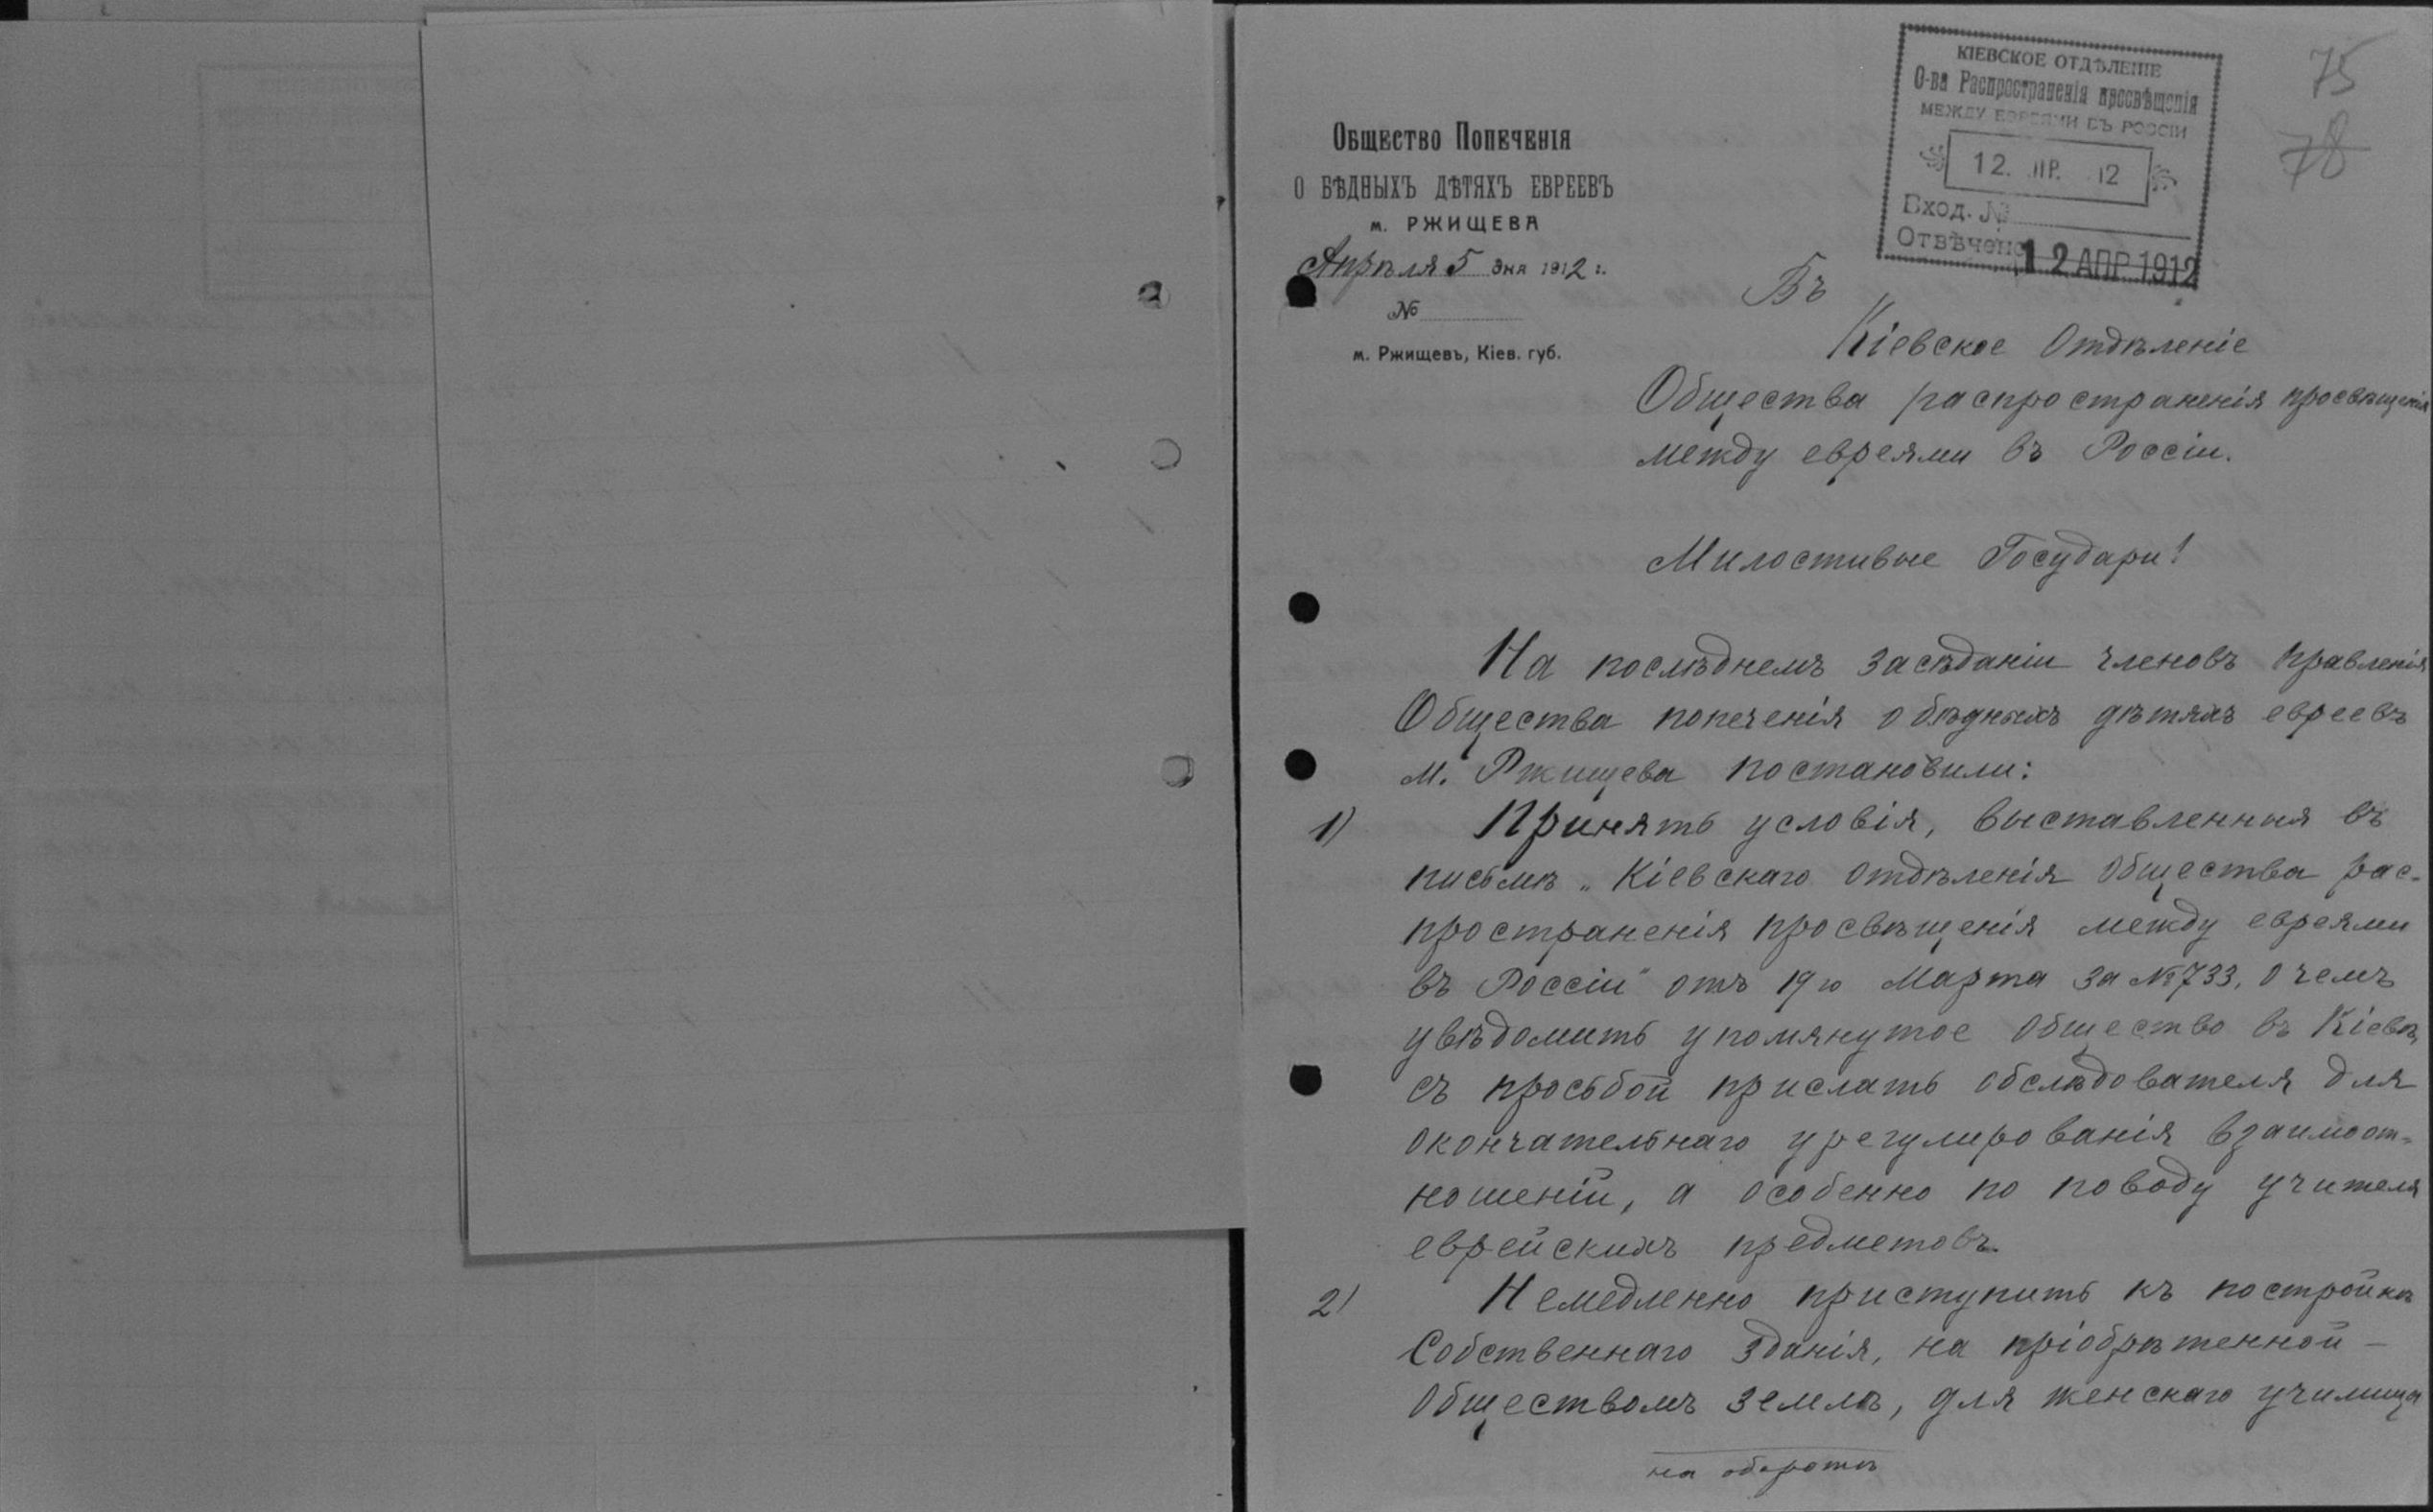 КІЕВСКОЕ ОТДѢЛЕНІЕ
О-ва Распространенія просвѣщенія
МЕЖДУ ЕВРЕЯМИ ВЪ РОССІИ
12. ПР. 12
Вход. №
Отвѣчено 12 АПР 1912
75
78
Общество Попеченія
О БѢДНЫХЪ ДѢТЯХЪ ЕВРЕЕВЪ
м. РЖИЩЕВА
Апрѣля 5 дня 1912 г.
№
м. Ржищевъ, Кіев. губ.
Въ
Кіевское Отдѣленіе
Общества распространенія просвѣщенія
между евреями въ Россіи.
Милостивые Государи!
На послѣднемъ засѣданіи членовъ правленія
Общества попеченія о бѣдныхъ дѣтяхъ евреевъ
м. Ржищева постановили:
1) Принять условія, выставленныя въ
письмѣ „Кіевскаго отдѣленія Общества рас-
пространенія просвѣщенія между евреями
въ Россіи" отъ 19го Марта за №733, о чемъ
увѣдомить упомянутое общество въ Кіевѣ,
съ просьбой прислать обслѣдователя для
окончательнаго урегулированія взаимоот-
ношеній, а особенно по поводу учителя
еврейскихъ предметовъ.
2) Немедленно приступить къ постройкѣ
Собственнаго зданія, на пріобрѣтенной –
Обществомъ землѣ, для женскаго училища
на оборотѣ